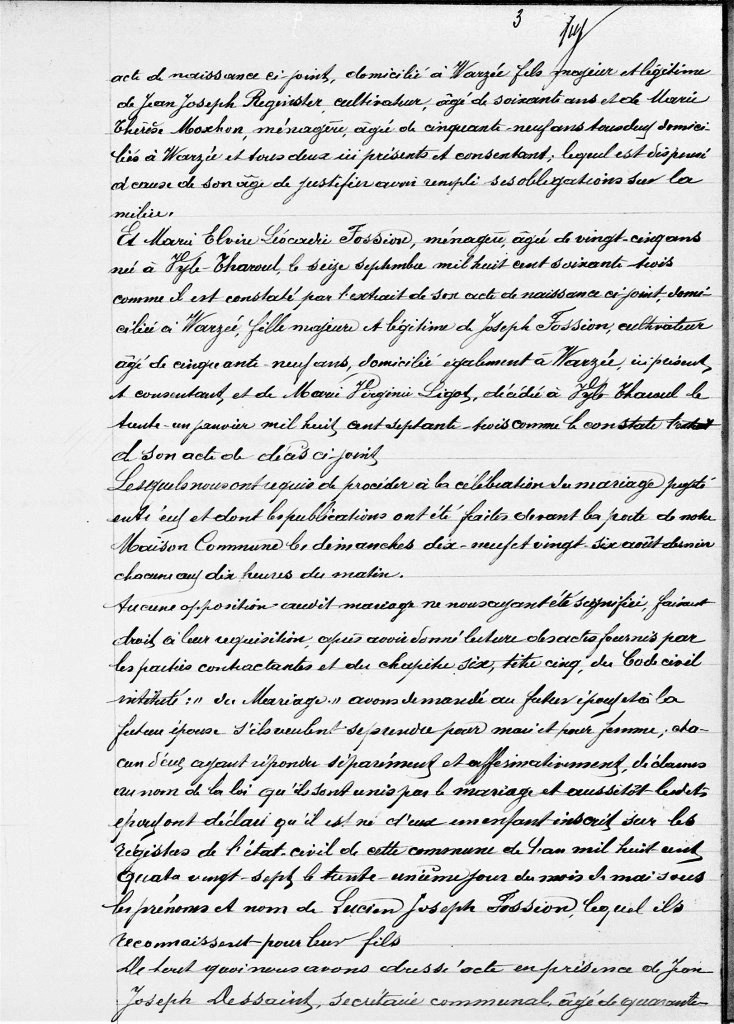 3
acte de naissance ci-joint, domicilié à Warzée fils majeur et légitime
de Jean Joseph Reginster, cultivateur, âgé de soixante ans et de Marie
Thérèse Moxhon, ménagère, âgée de cinquante-neuf ans tous deux domici-
liés à Warzée et tous deux ici présents et consentant; lequel est dispensé
à cause de son âge de justifier avoir rempli ses obligations sur la
milice.
Et Marie Elvire Léocadie Fossion, ménagère, âgée de vingt-cinq ans
née à Vyle-Tharoul, le seize septembre mil huit cent soixante trois
comme il est constaté par l'extrait de son acte de naissance ci-joint, domi-
ciliée à Warzée, fille majeure et légitime de Joseph Fossion, cultivateur
âgé de cinquante-neuf ans, domicilié également à Warzée, ici présent,
et consentant, et de Marie Virginie Ligot, décédée à Vyle-Tharoul le
trente-un janvier mil huit cent septante-trois comme le constate
de son acte de décès ci-joint
Lesquels nous ont requis de procéder à la célébration du mariage projeté
entr'eux et dont les publications ont été faites devant la porte de notre
Maison Commune les dimanches dix-neuf et vingt-six août dernier
chacune aux dix heures du matin.
Aucune opposition audit mariage ne nous ayant été signifiée, faisant
droit à leur requisition, après avoir donné lecture des actes fournis par
les parties contractantes et du chapitre six, titre cinq, du Code civil
intitulé: " du Mariage " avons demandé au futur époux et à la
future épouse s'ils veulent se prendre pour mari et pour femme, cha-
cun d'eux ayant répondu séparément et affirmativement, déclarons
au nom de la loi qu'ils sont unis par le mariage et aussitôt lesdits
époux ont déclaré qu'il est né d'eux un enfant inscrit sur les
registres de l'état-civil de cette commune de l'an mil huit cent
quatre vingt-sept le trente-unième jour du mois de mai sous
les prénoms et nom de Lucien Joseph Fossion, lequel ils
reconnaissent pour leur fils
De tout quoi nous avons dressé acte en présence de Jean
Joseph Dessaint, secrétaire communal, âgé de quarante-